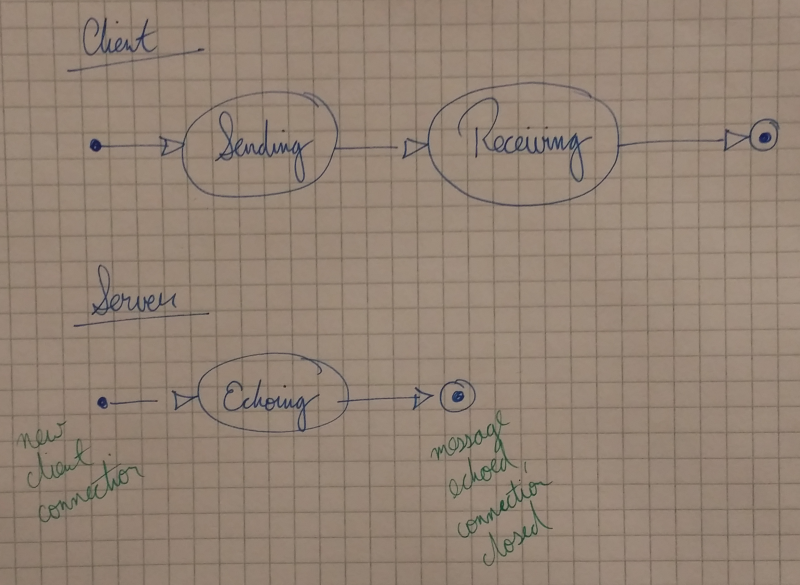 Client
Sending
Receiving
Server
Echoing
new
client
connection
message
echoed,
connection
closed